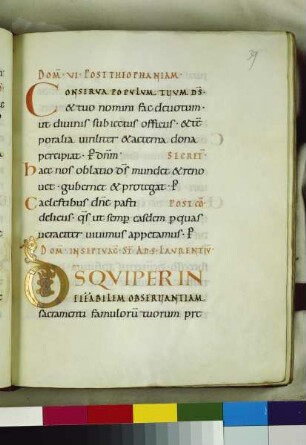 39
DOM̄ · VI · POST THEOPHANIAM ·
CONSERVA POPULUM TUUM D̄S
& tuo nomini fac deuotum ·
ut diuinis subiectus officiis · & tē
poralia uiriliter & aeterna dona
percipiat · P dn̄m · SECRET̄
haec nos oblatio d̄s mundet & reno
uet · gubernet & protegat · P
Caelestibus dn̄e pasti POST CŌ
deliciis · q̄s ut semp eadem p quae
ueraciter uiuimus appetamus · P
DOM̄ IN SEPTUAG̅ ST̄ AD S · LAURENTIŪ
D̄S QUI PER IN
EFFABILEM OBSERUANTIAM
sacramenti famulorū tuorum pre